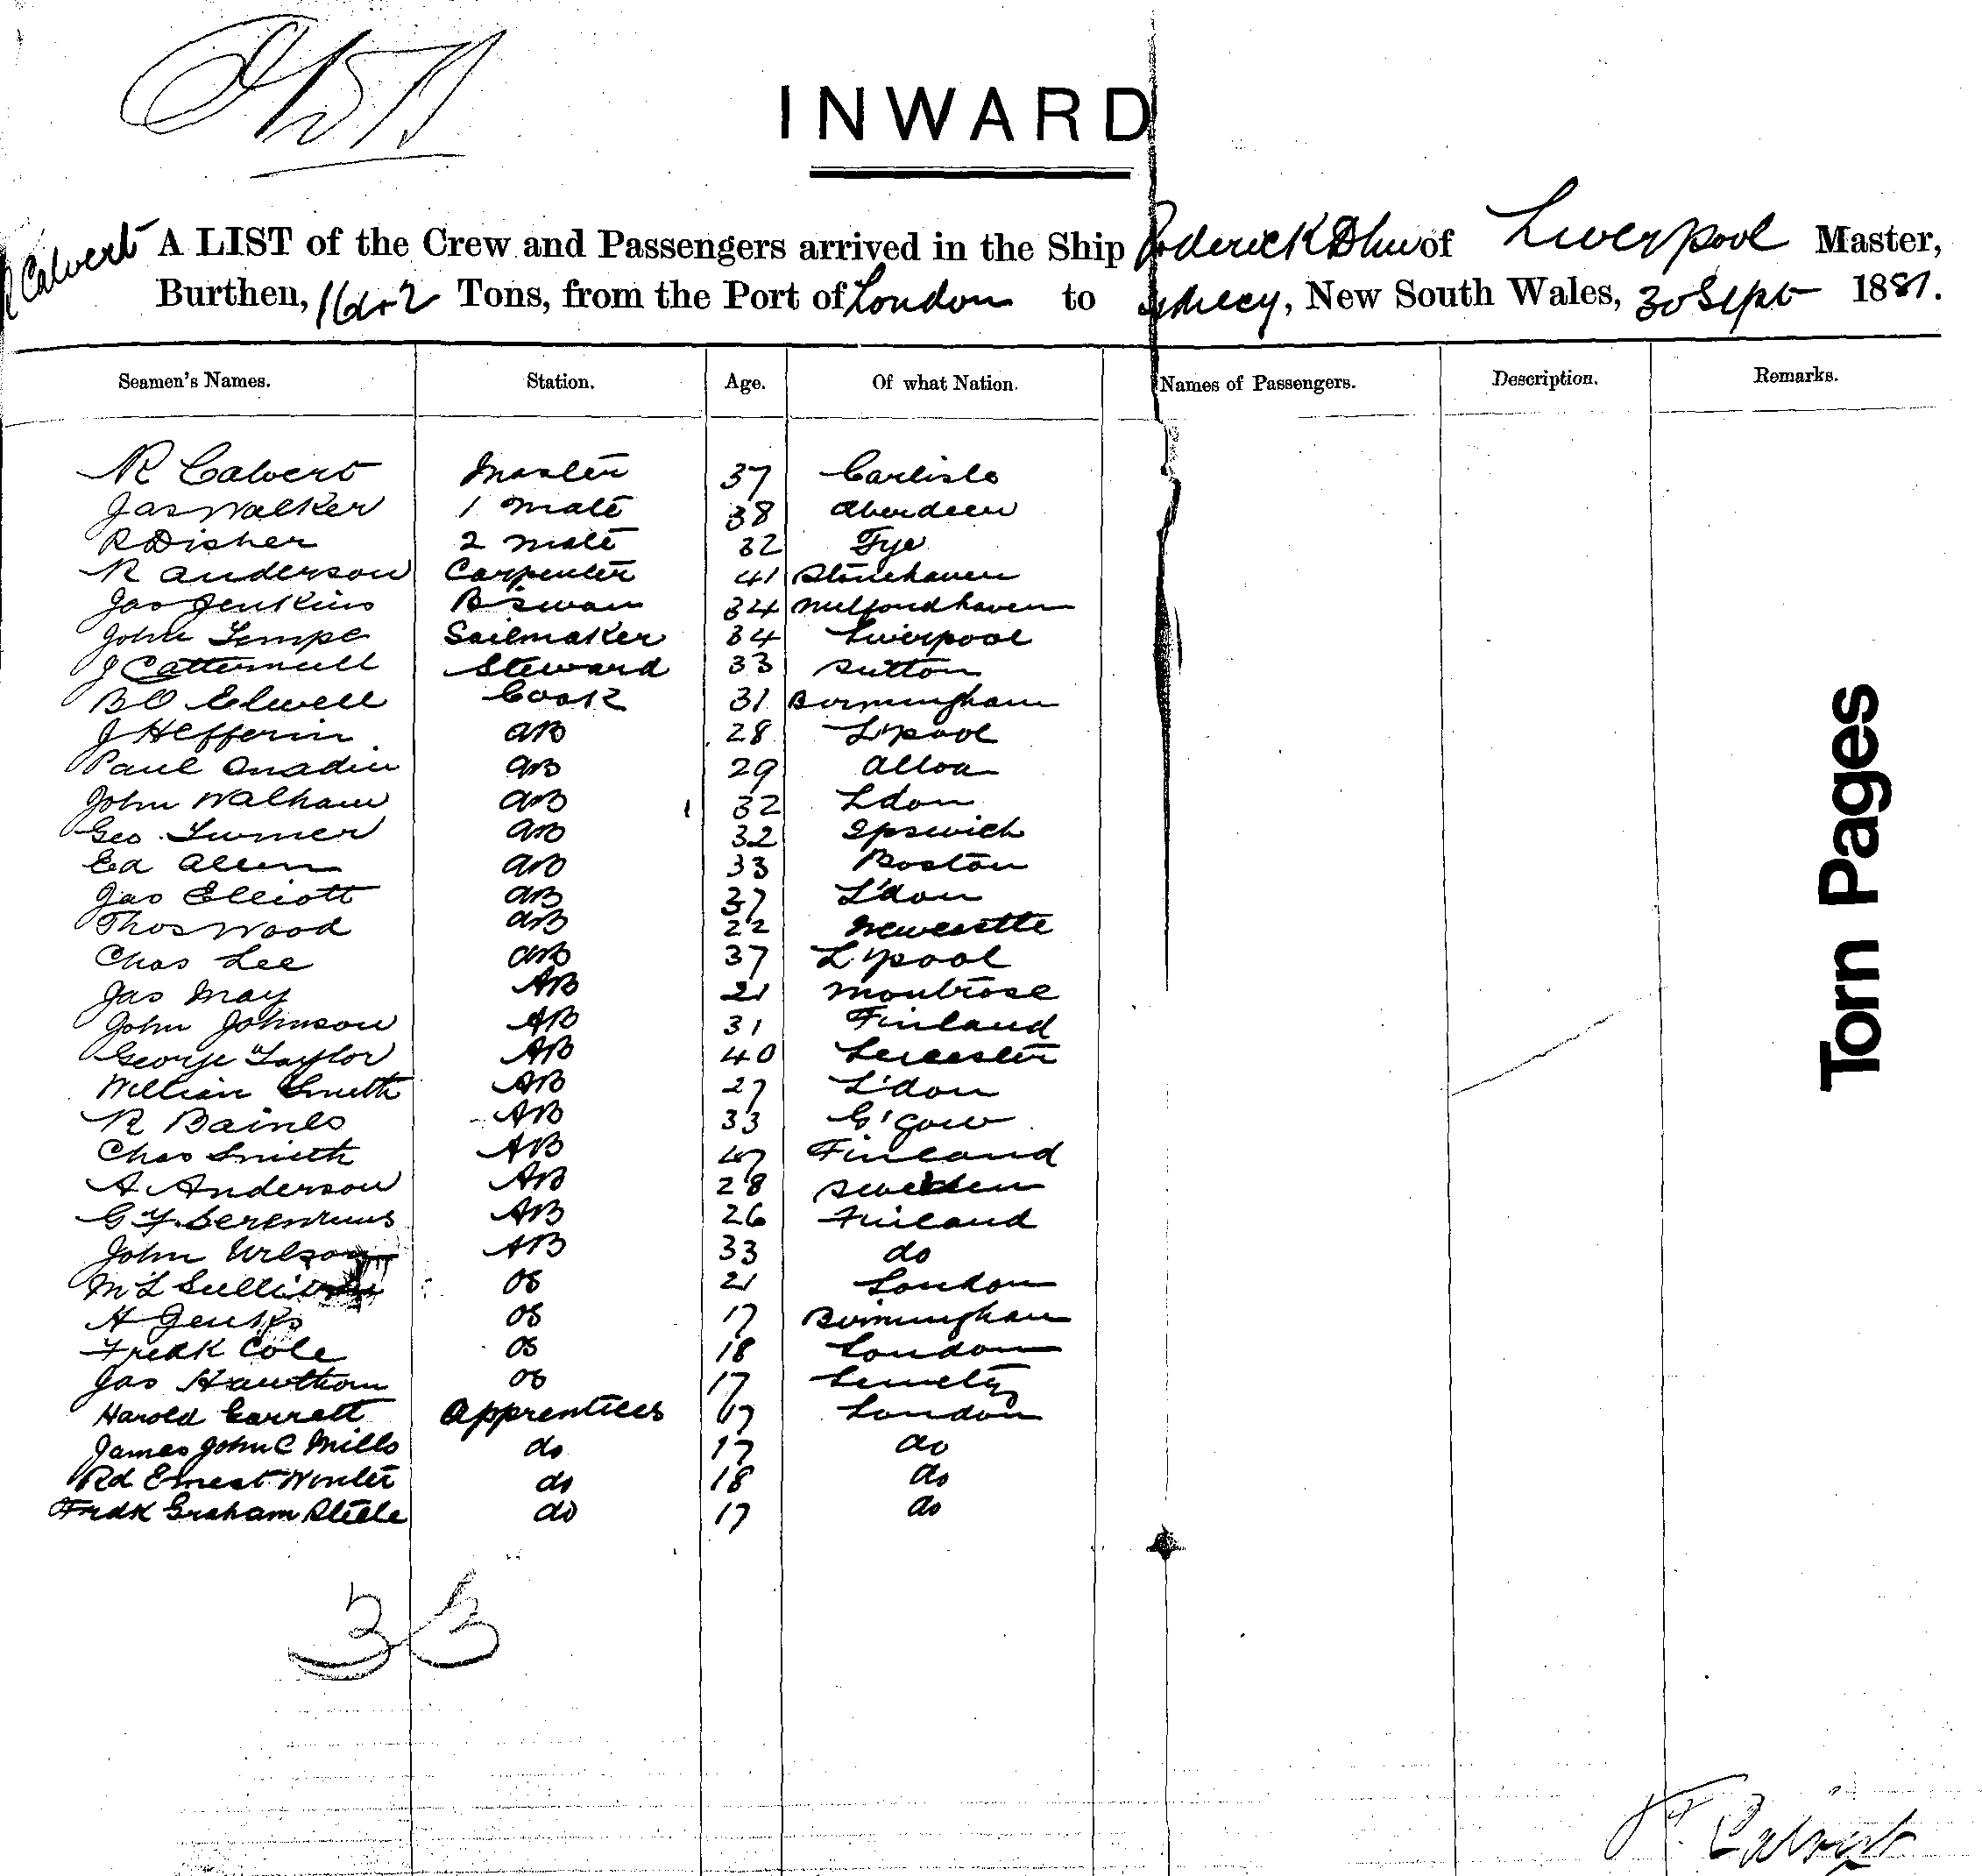 INWARD
R Calvert A LIST of the Crew and Passengers arrived in the Ship Roderick Dhu of Liverpool Master,
Burthen, Tons, from the Port of London to Sydney, New South Wales, 30 Sept 1881.
Seamen's Names. Station. Age. Of what Nation. Names of Passengers. Description. Remarks.
R Calvert Master 37 Carlisle
Jas Walker 1 Mate 38 Aberdeen
R Disher 2 Mate 32
R Anderson Carpenter 41 Stonehaven
Jas Jenkins B'swan 34 Milfordhaven
John Tempe Sailmaker 34 Liverpool
J Cattermull Steward 33 Sutton
B O Elwell Cook 31 Birmingham
J Hefferin AB 28 L'pool
Paul AB 29 Alloa
John Walham AB 32 Ldon
Geo. Turner AB 32 Ipswich
Ed Allen AB 33 Boston
Jas Elliott AB 37 L'don
Thos Wood AB 22 Newcastle
Chas Lee AB 37 L'pool
Jas May AB 21 Montrose
John Johnson AB 31 Finland
George Taylor AB 40 Leicester
William Smith AB 27 L'don
R Baines AB 33 G'gow
Chas Smith AB 47 Finland
A Anderson AB 28 Sweden
G F AB 26 Finland
John Wilson AB 33 do
M L Sullivan OS 21 London
H Jenks OS 17 Birmingham
Fredk Cole OS 18 London
Jas Hawthorn OS 17
Harold Garrett Apprentices 17 London
James John C Mills do 17 do
Rd Ernest Winter do 18 do
Fredk Graham Steele do 17 do
33
R. Calvert
Torn Pages